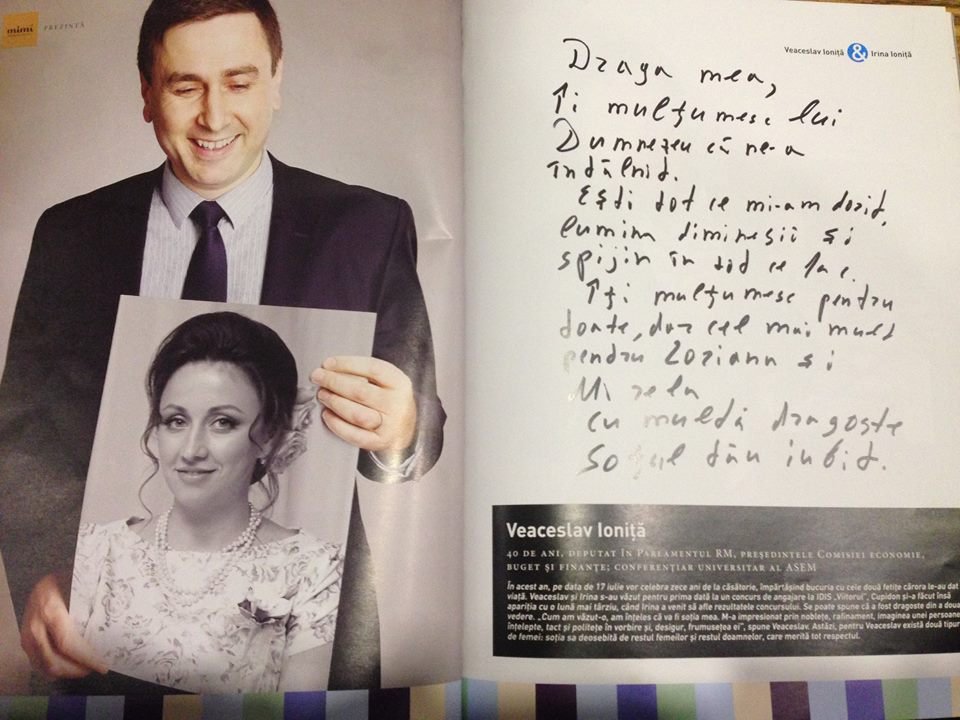 mimi PREZINTĂ
Veaceslav Ioniță & Irina Ioniță
Draga mea,
Îți mulțumesc lui
Dumnezeu că ne-a
întâlnit.
Ești tot ce mi-am dorit,
lumina dimineții și
spijin în tot ce fac.
Îți mulțumesc pentru
toate, dar cel mai mult
pentru Loriana și
Mirela
cu multă dragoste
Soțul tău iubit.
Veaceslav Ioniță
40 DE ANI, DEPUTAT ÎN PARLAMENTUL RM, PREȘEDINTELE COMISIEI ECONOMIE,
BUGET ȘI FINANȚE; CONFERENȚIAR UNIVERSITAR AL ASEM
În acest an, pe data de 17 iulie vor celebra zece ani de la căsătorie, împărtășind bucuria cu cele două fetițe cărora le-au dat
viață. Veaceslav și Irina s-au văzut pentru prima dată la un concurs de angajare la IDIS „Viitorul”, Cupidon și-a făcut însă
apariția cu o lună mai târziu, când Irina a venit să afle rezultatele concursului. Se poate spune că a fost dragoste din a doua
vedere. „Cum am văzut-o, am înțeles că va fi soția mea. M-a impresionat prin noblețe, rafinament, imaginea unei persoane
înțelepte, tact și politețe în vorbire și, desigur, frumusețea ei”, spune Veaceslav. Astăzi, pentru Veaceslav există două tipuri
de femei: soția sa deosebită de restul femeilor și restul doamnelor, care merită tot respectul.